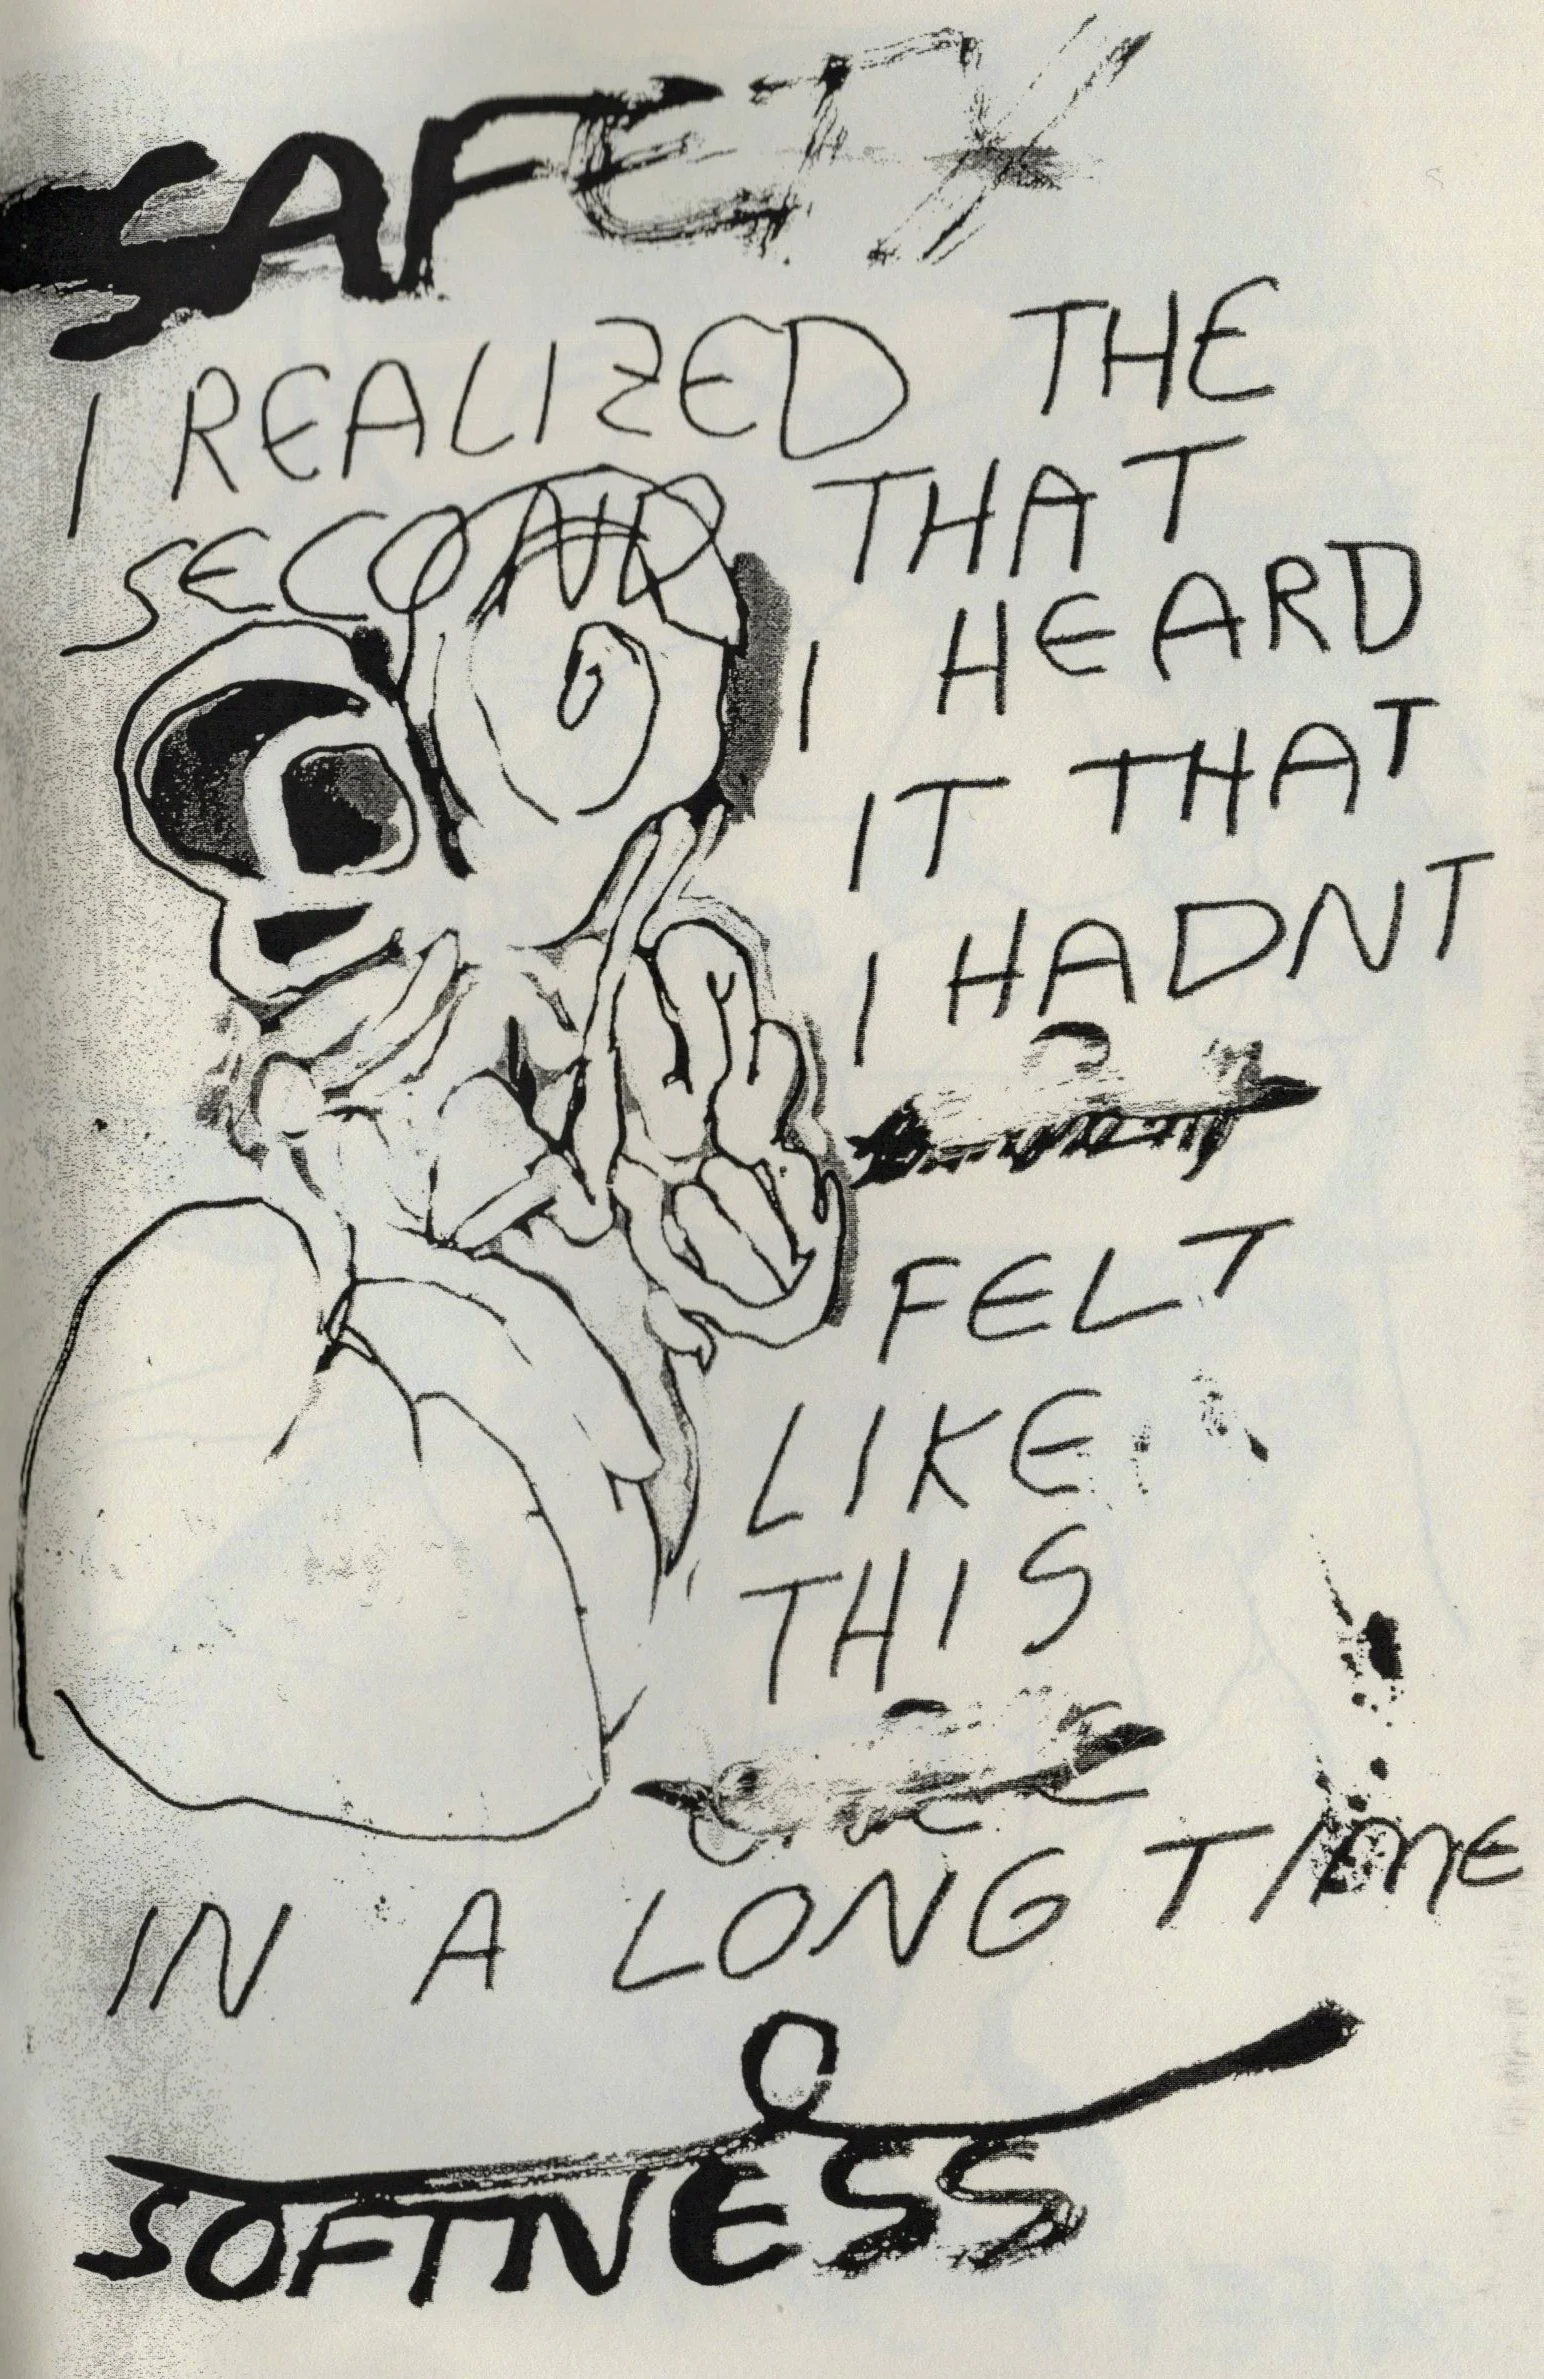 SAFETY
I REALIZED THE
SECOND THAT
I HEARD
IT THAT
I HADNT
FELT
LIKE
THIS
IN A LONG TIME
SOFTNESS